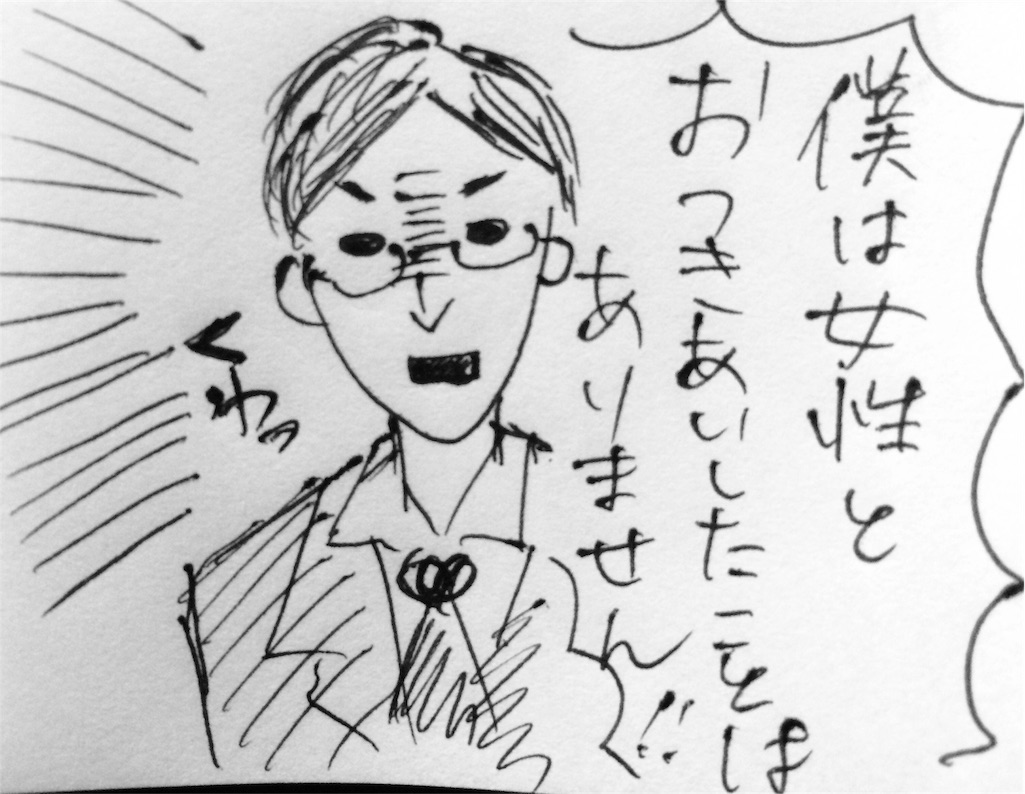 僕は女性と
おつきあいしたことは
ありません!!
くわっ